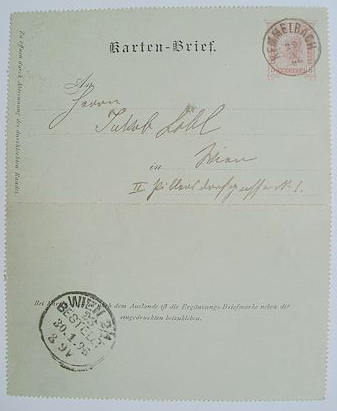 Zu öffnen durch Abtrennung des durchlochten Randes.
Karten-Brief.
KEMMELBACH
An
Herrn
Jakob Löbl
in Wien
II Pillersdorfgasse № 1.
Bei Karten nach dem Auslande ist die Ergänzungs-Briefmarke neben der
eingedruckten beizukleben.
WIEN 2/1
BESTELLT
30.1.96
8 9V